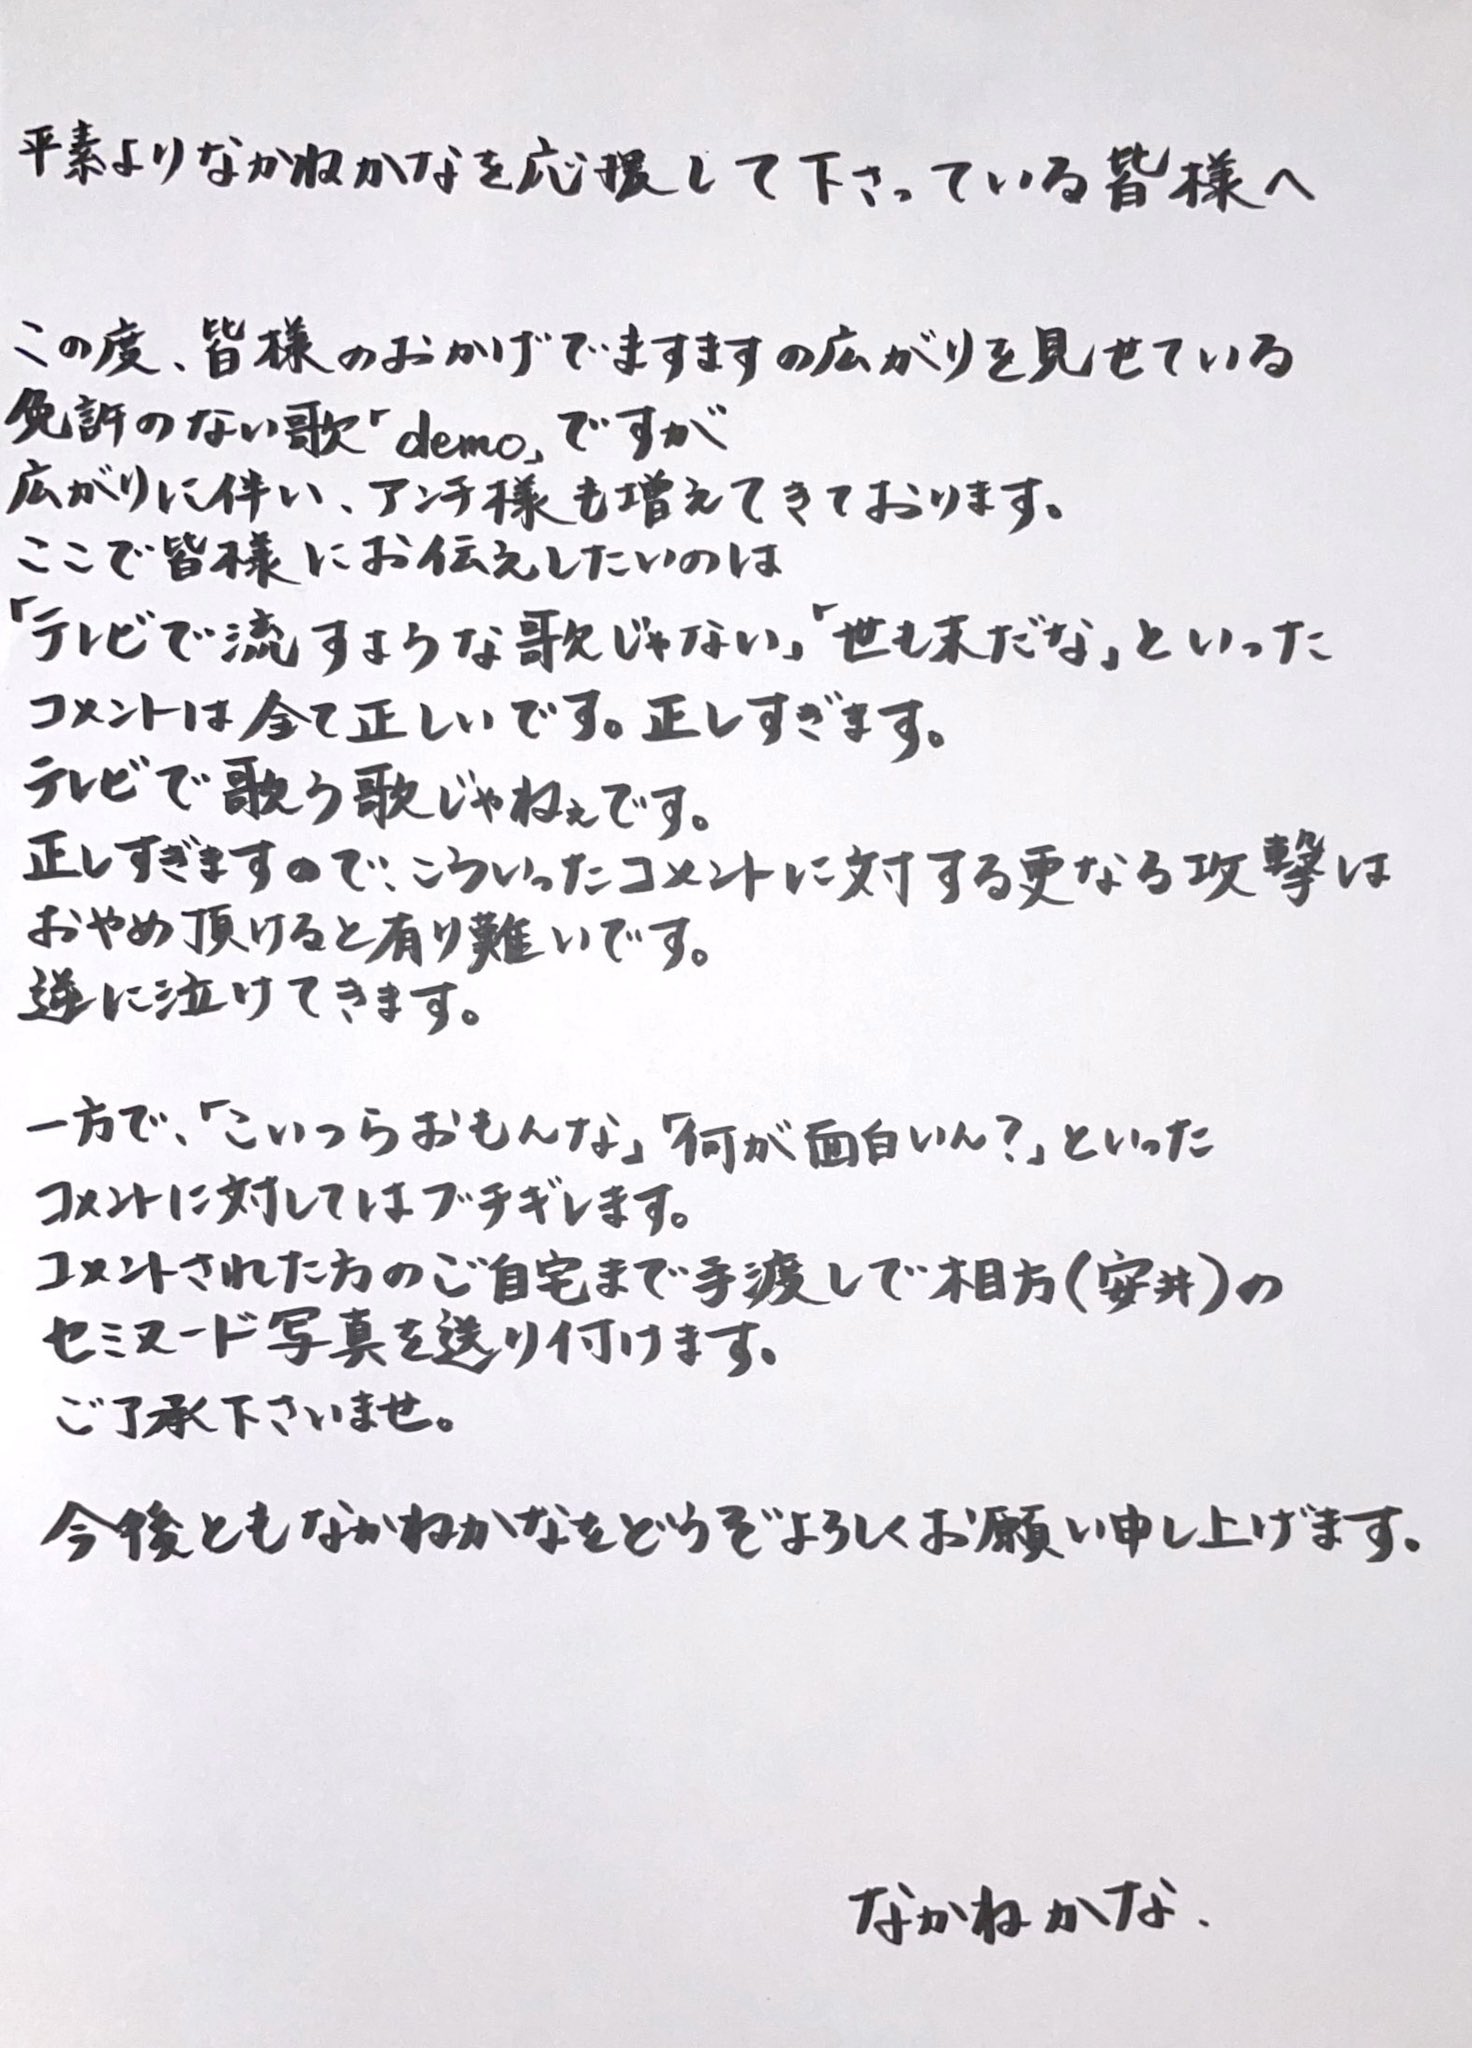 平素よりなかねかなを応援して下さっている皆様へ
この度、皆様のおかげでますますの広がりを見せている
免許のない歌「demo」ですが
広がりに伴い、アンチ様も増えてきております。
ここで皆様にお伝えしたいのは
「テレビで流すような歌じゃない」「世も末だな」といった
コメントは全て正しいです。正しすぎます。
テレビで歌う歌じゃねぇです。
正しすぎますので、こういったコメントに対する更なる攻撃は
おやめ頂けると有り難いです。
逆に泣けてきます。
一方で、「こいつらおもんな」「何が面白いん?」といった
コメントに対してはブチギレします。
コメントされた方のご自宅まで手渡しで相方(安井)の
セミヌード写真を送り付けます。
ご了承下さいませ。
今後ともなかねかなをどうぞよろしくお願い申し上げます。
なかねかな.